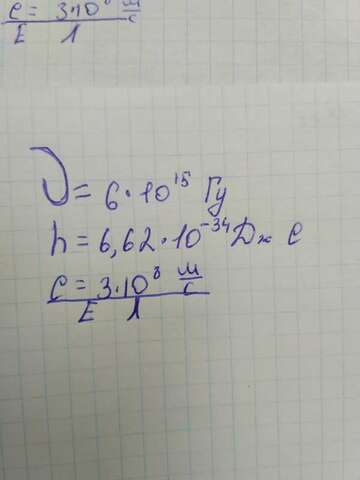 c = 3·10⁸ м/с
E λ
ν = 6·10¹⁵ Гц
h = 6,62·10⁻³⁴ Дж с
c = 3·10⁸ м/с
E λ